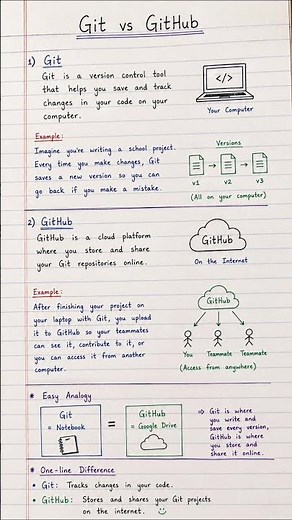 Git vs GitHub
1) Git
Git is a version control tool
that helps you save and track
changes in your code on your
computer.
</>
Your Computer
Example:
Imagine you're writing a school project.
Every time you make changes, Git
saves a new version so you can
go back if you make a mistake.
Versions
v1 v2 v3
(All on your computer)
2) GitHub
GitHub is a cloud platform
where you store and share
your Git repositories online.
GitHub
On the Internet
Example:
After finishing your project on
your laptop with Git, you upload
it to GitHub so your teammates
can see it, contribute to it, or
you can access it from another
computer.
GitHub
You Teammate Teammate
(Access from anywhere)
* Easy Analogy
Git
= Notebook
=
GitHub
= Google Drive
⇒ Git is where
you write and
save every version,
GitHub is where
you store and
share it online.
* One-line Difference
• Git: Tracks changes in your code.
• GitHub: Stores and shares your Git projects
on the internet. ☺